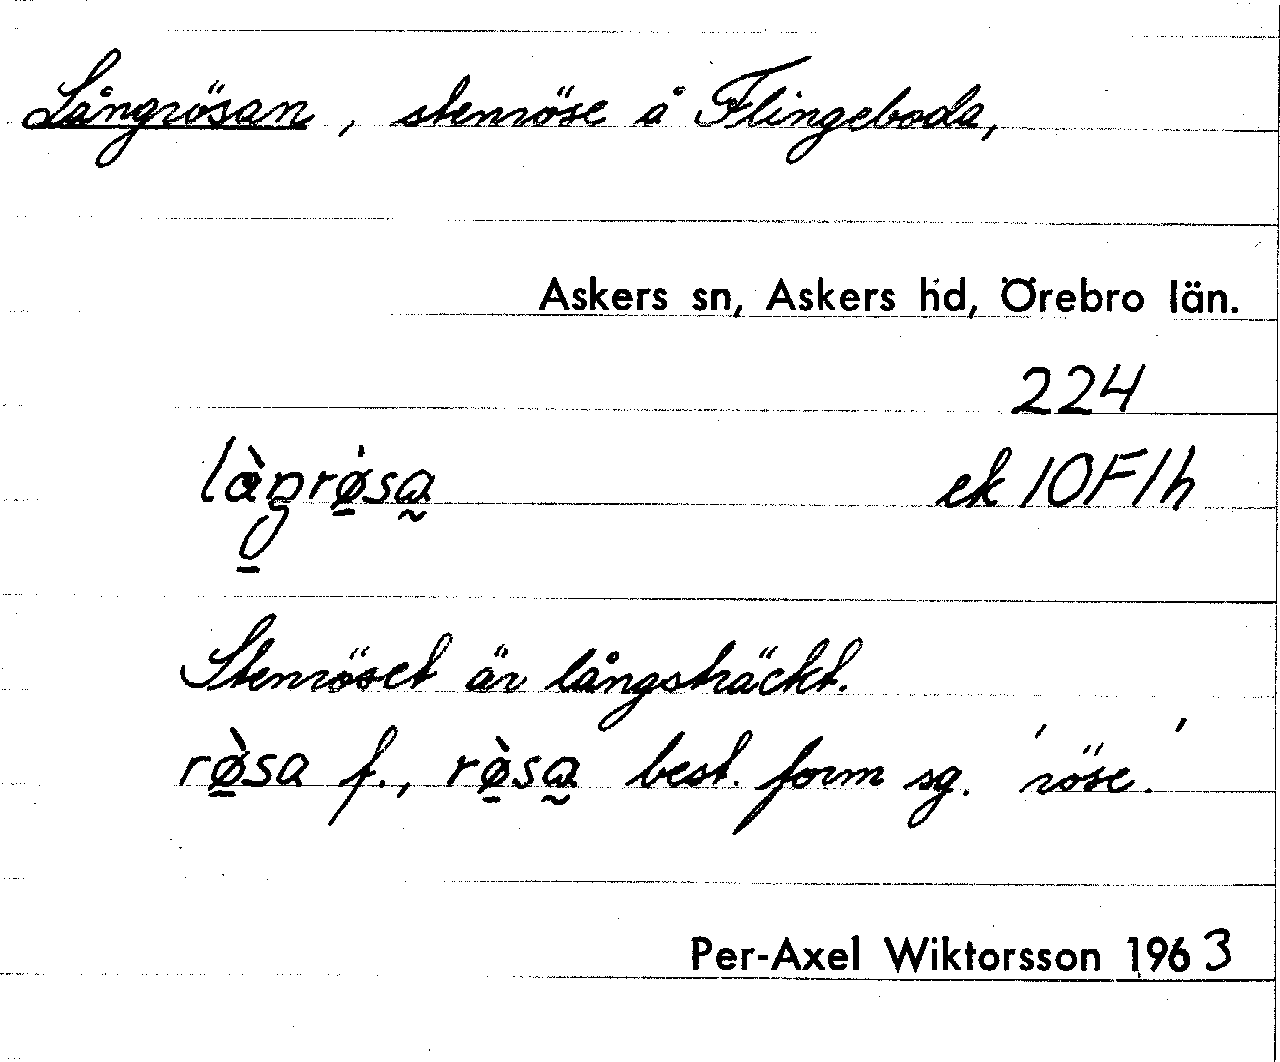 Långrösan, stenröse å Flingeboda,
Askers sn, Askers hd, Örebro län.
224
làŋrǿ̱sa̰ ek 10F1h
Stenröset är långsträckt.
rø̱̀sa f., rø̱̀sa̰ best. form sg. 'röse.'
Per-Axel Wiktorsson 1963